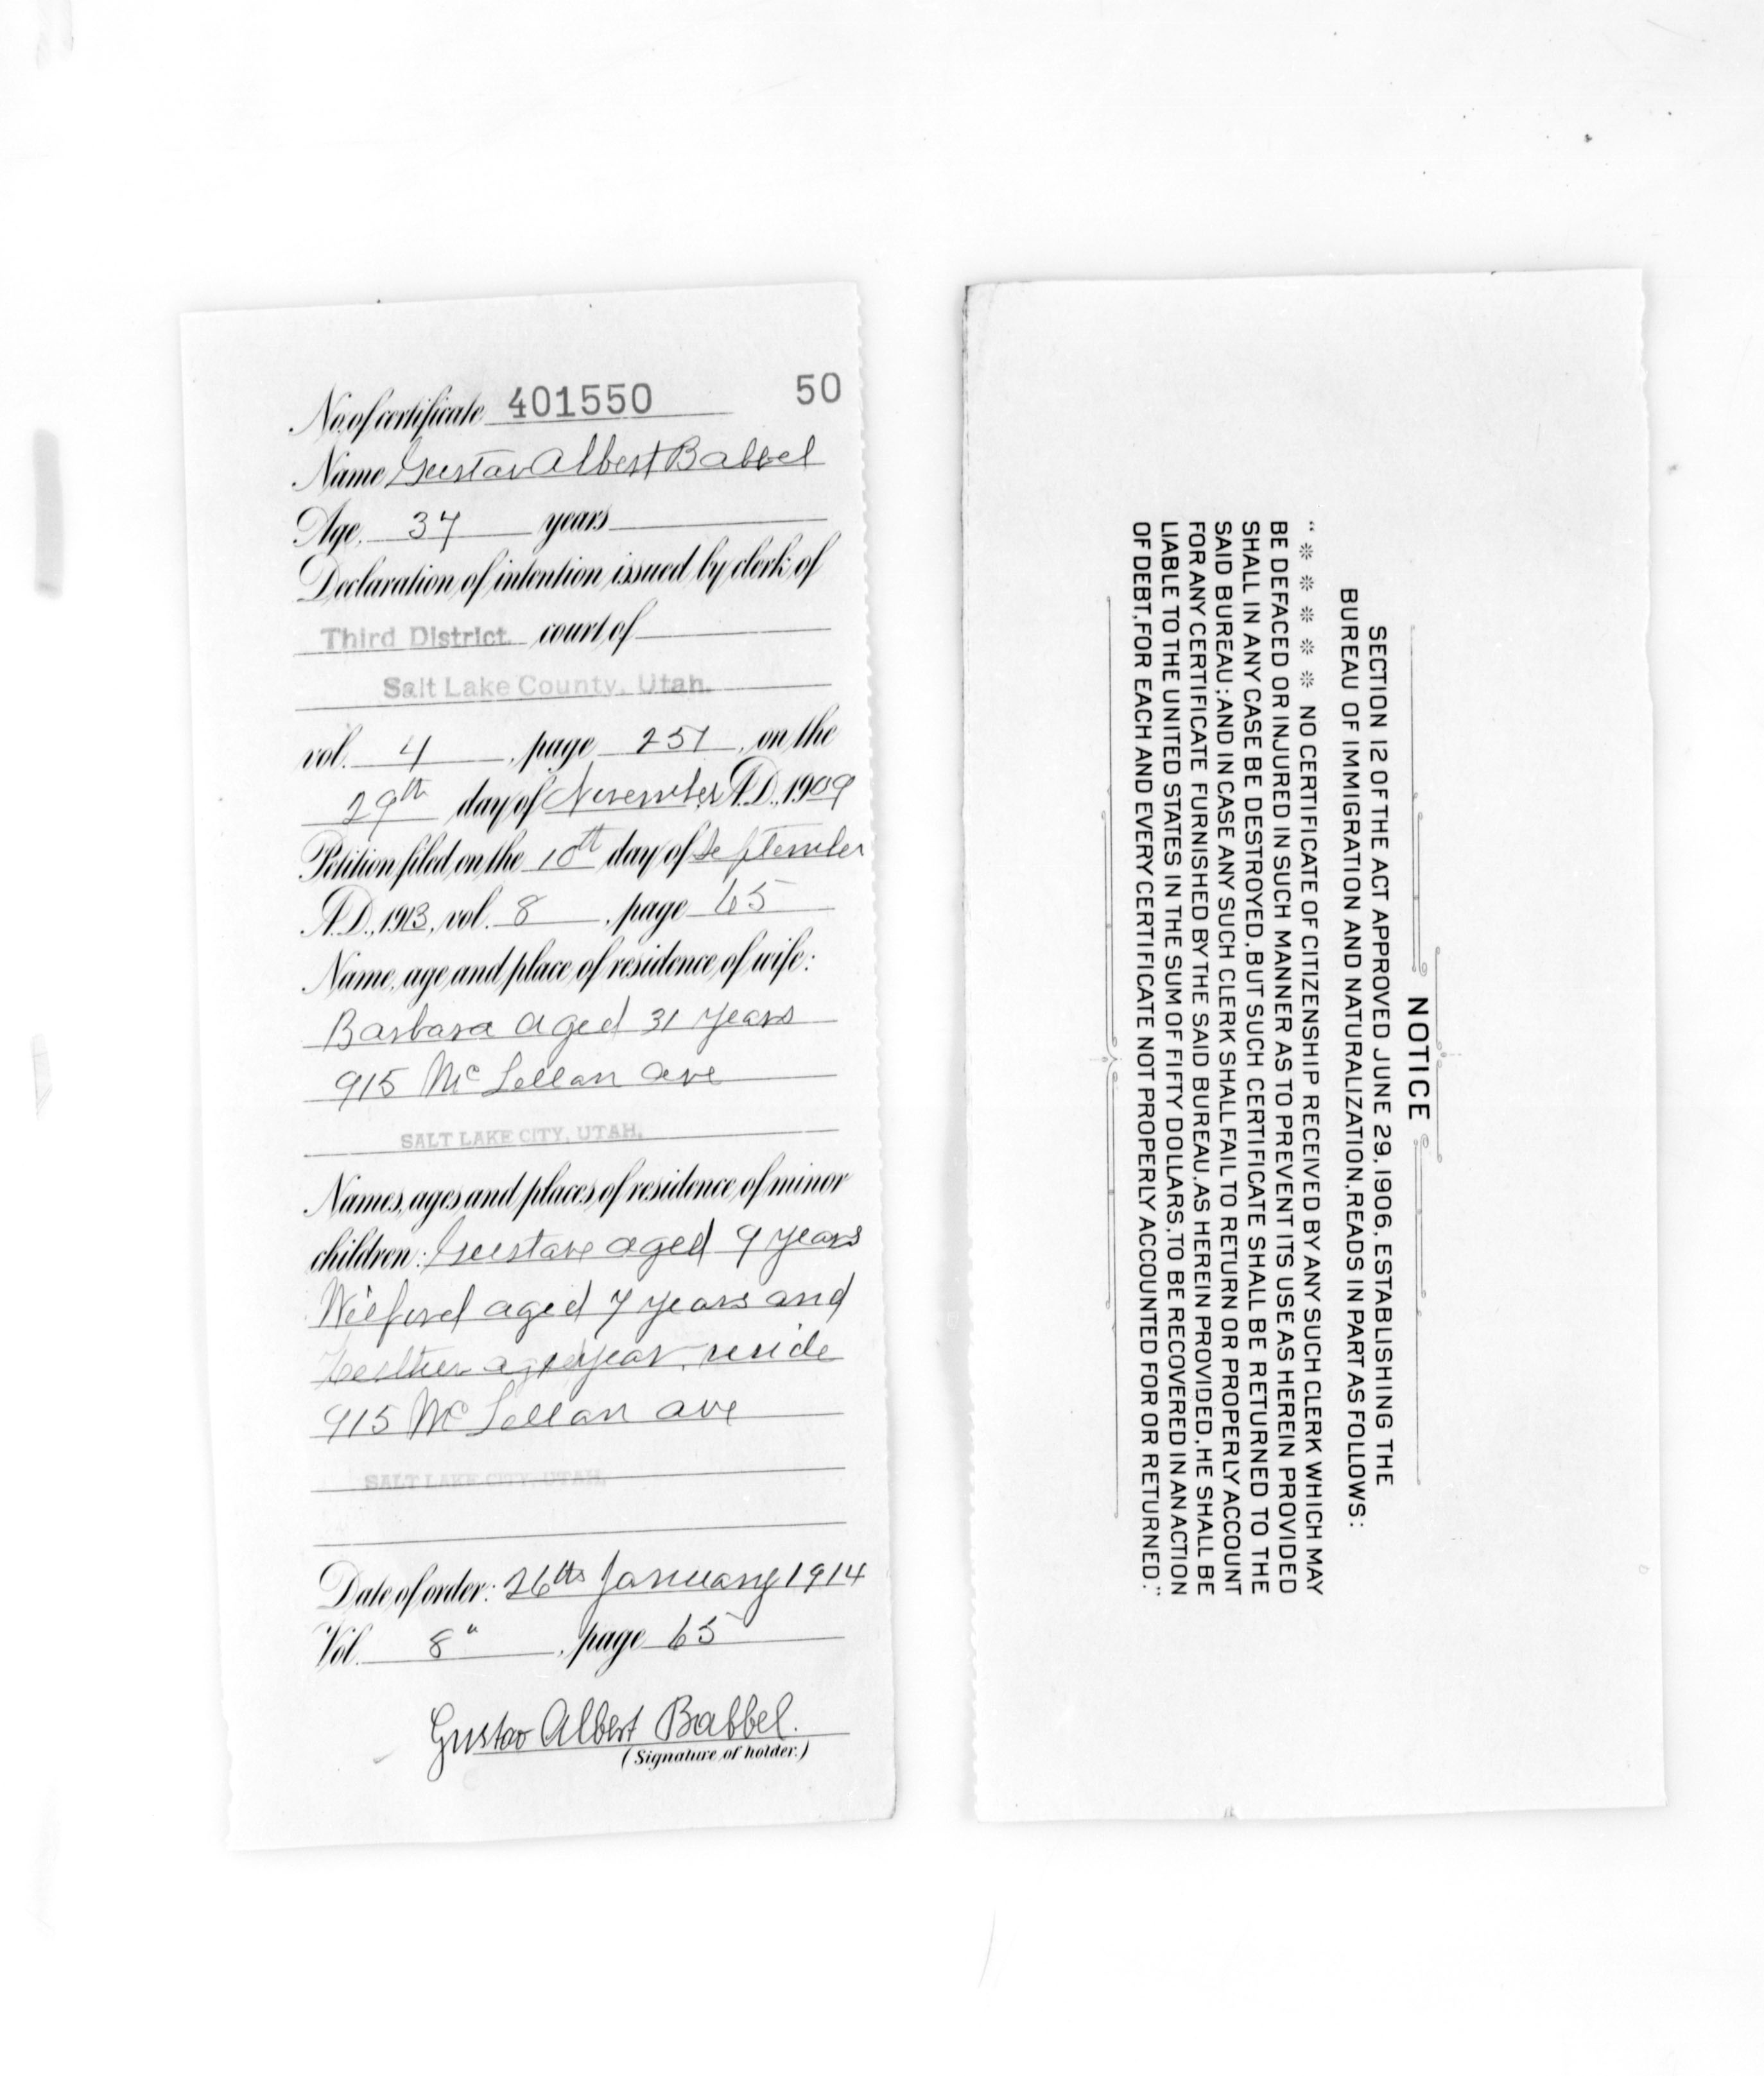 No. of certificate 401550 50
Name Gustav Albert Babbel
Age 37 years
Declaration of intention issued by clerk of
Third District court of
Salt Lake County, Utah.
vol. 4, page 257, on the
29th day of November A.D., 1909
Petition filed on the 10th day of September
A.D., 1913, vol. 8, page 65
Name, age and place of residence of wife:
Barbara aged 31 years
915 Mc Lellan ave
SALT LAKE CITY, UTAH.
Names, ages and places of residence of minor
children: Gustave aged 9 years
Wilford aged 7 years and
year reside
915 Mc Lellan ave
SALT LAKE CITY, UTAH.
Date of order: 26th January 1914
Vol. 8", page 65
Gustav Albert Babbel.
(Signature of holder.)
NOTICE
SECTION 12 OF THE ACT APPROVED JUNE 29, 1906, ESTABLISHING THE
BUREAU OF IMMIGRATION AND NATURALIZATION, READS IN PART AS FOLLOWS:
"※ ※ ※ ※ ※ NO CERTIFICATE OF CITIZENSHIP RECEIVED BY ANY SUCH CLERK WHICH MAY
BE DEFACED OR INJURED IN SUCH MANNER AS TO PREVENT ITS USE AS HEREIN PROVIDED
SHALL IN ANY CASE BE DESTROYED, BUT SUCH CERTIFICATE SHALL BE RETURNED TO THE
SAID BUREAU; AND IN CASE ANY SUCH CLERK SHALL FAIL TO RETURN OR PROPERLY ACCOUNT
FOR ANY CERTIFICATE FURNISHED BY THE SAID BUREAU, AS HEREIN PROVIDED, HE SHALL BE
LIABLE TO THE UNITED STATES IN THE SUM OF FIFTY DOLLARS, TO BE RECOVERED IN AN ACTION
OF DEBT, FOR EACH AND EVERY CERTIFICATE NOT PROPERLY ACCOUNTED FOR OR RETURNED."